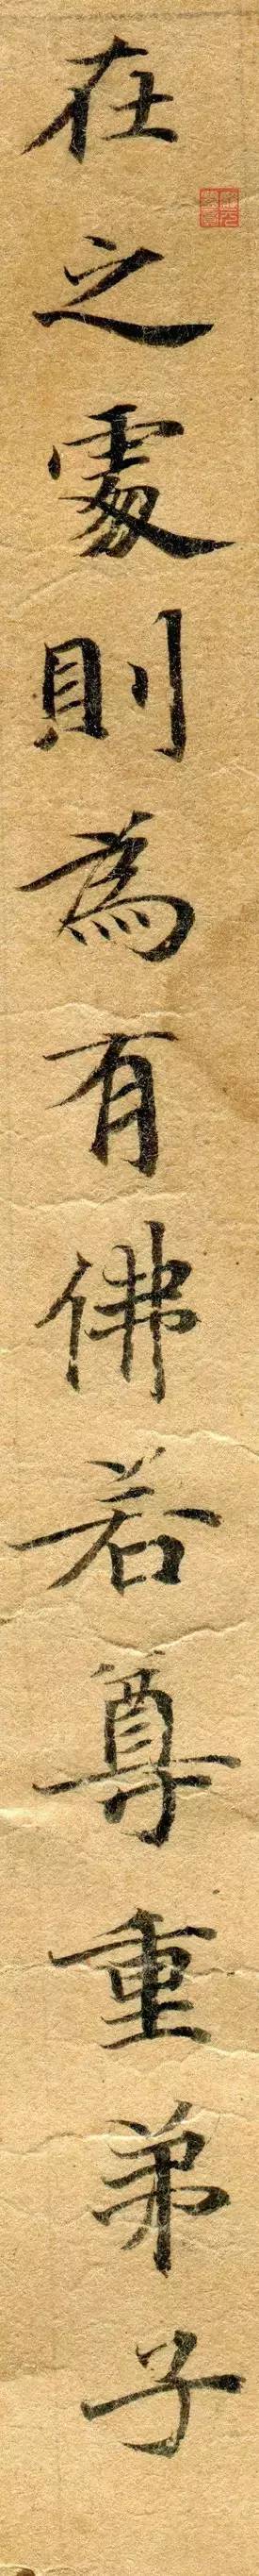 在之處則為有佛若尊重弟子